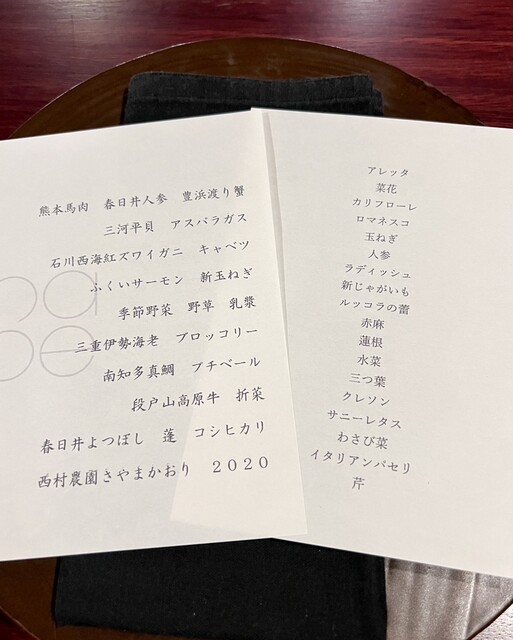 熊本馬肉　春日井人参　豊浜渡り蟹
三河平貝　アスパラガス
石川西海紅ズワイガニ　キャベツ
ふくいサーモン　新玉ねぎ
季節野菜　野草　乳漿
三重伊勢海老　ブロッコリー
南知多真鯛　プチベール
段戸山高原牛　折菜
春日井よつぼし　蓬　コシヒカリ
西村農園さやまかおり　２０２０
アレッタ
菜花
カリフローレ
ロマネスコ
玉ねぎ
人参
ラディッシュ
新じゃがいも
ルッコラの蕾
赤麻
蓮根
水菜
三つ葉
クレソン
サニーレタス
わさび菜
イタリアンパセリ
芹